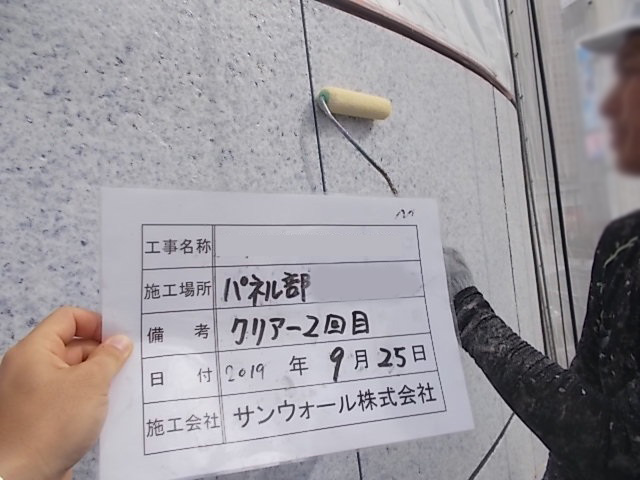 工事名称
施工場所 パネル部
備考 クリアー2回目
日付 2019年9月25日
施工会社 サンウォール株式会社